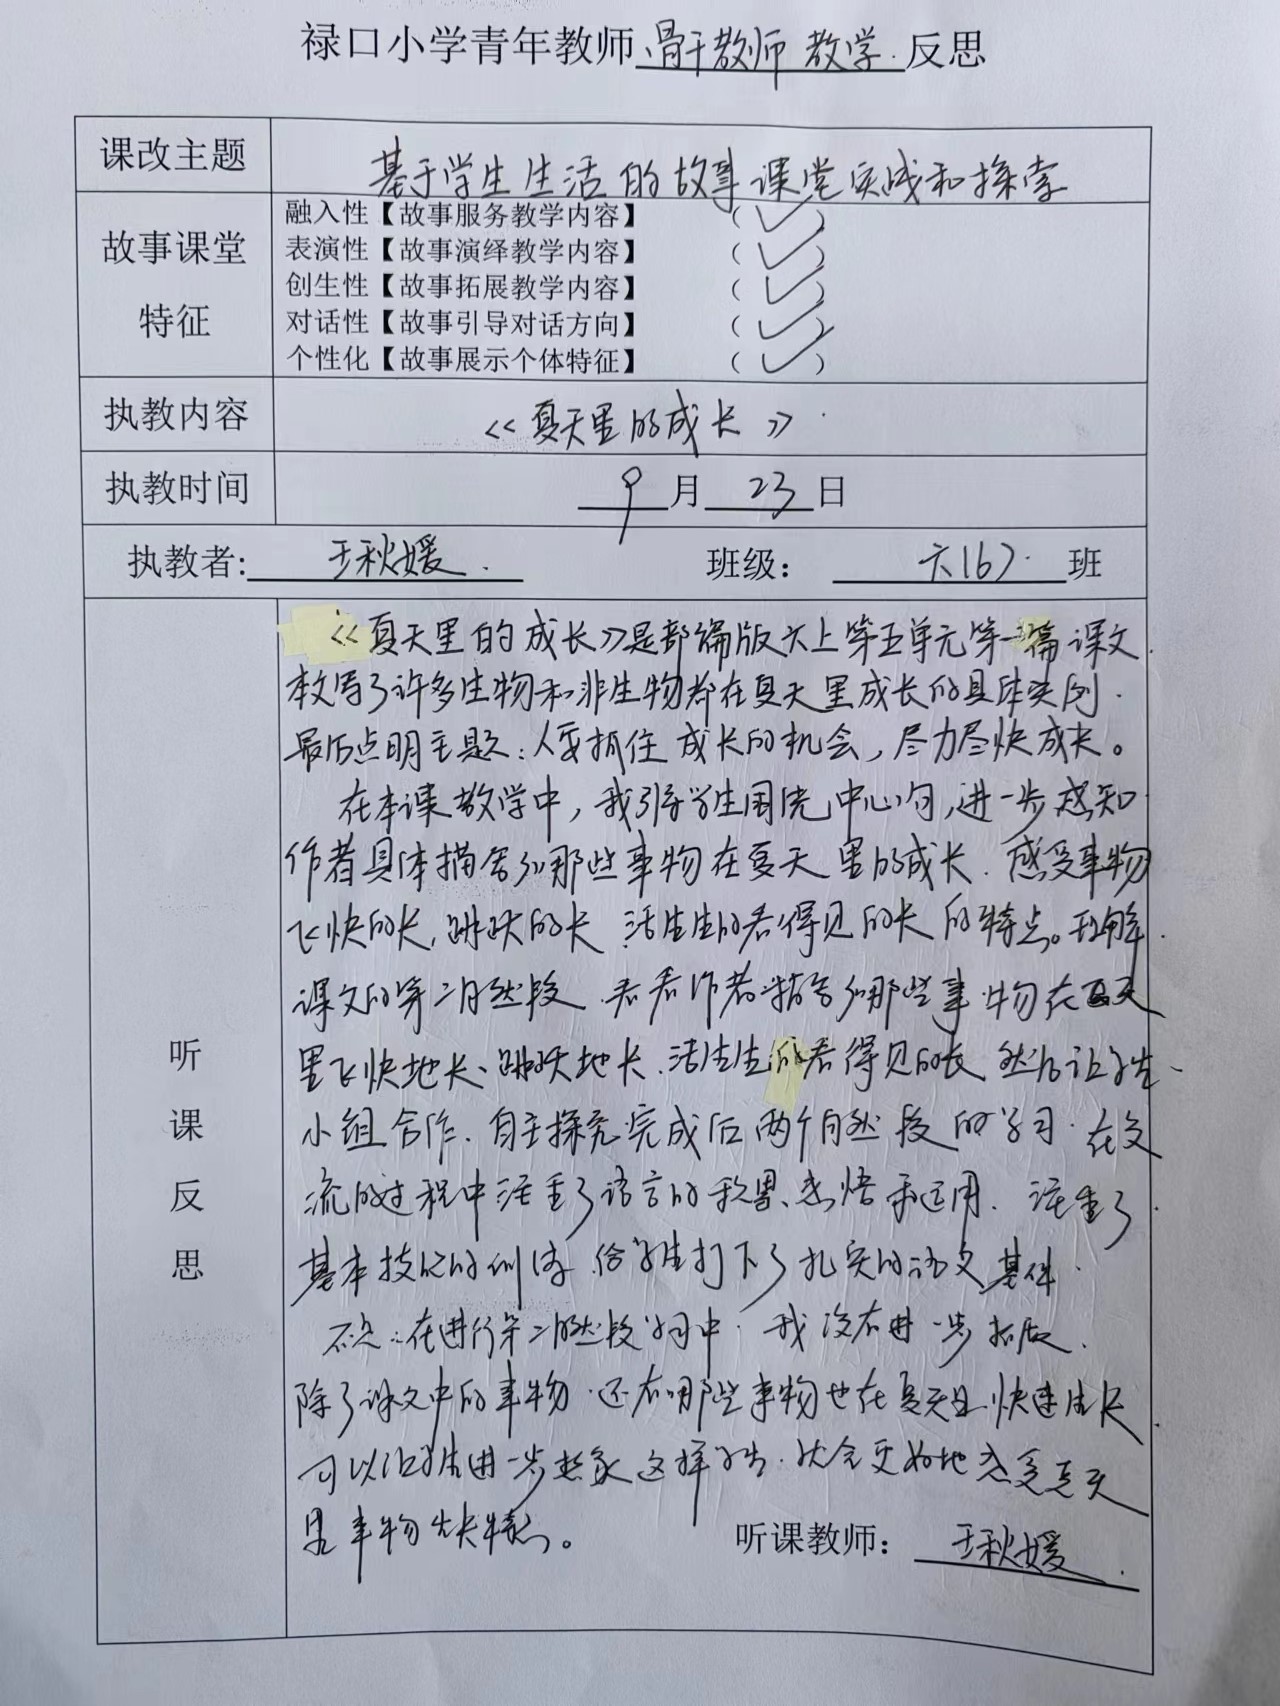 禄口小学青年教师 骨干教师 教学 反思
课改主题
基于学生生活的故事课堂实践和探索
故事课堂
特征
融入性【故事服务教学内容】 （✓）
表演性【故事演绎教学内容】 （✓）
创生性【故事拓展教学内容】 （✓）
对话性【故事引导对话方向】 （✓）
个性化【故事展示个体特征】 （✓）
执教内容
《夏天里的成长》
执教时间
9月23日
执教者: 王秋媛 班级： 六(6) 班
听课反思
《夏天里的成长》是部编版六上第五单元第一篇课文
教写了许多生物和非生物都在夏天里成长的具体实例.
最后点明主题:人要抓住成长的机会,尽力尽快成长。
在本课教学中,我引导学生围绕中心句,进一步感知
作者具体描写了哪些事物在夏天里的成长.感受事物
飞快的长,跳跃的长 活生生的看得见的长的特点。理解
课文的第二自然段 看看作者描写了哪些事物在夏天
里飞快地长、跳跃地长.活生生的看得见的长 然后让学生
小组合作.自主探究完成后两个自然段的学习.在交
流的过程中注重了语言的积累、感悟和运用.注重了
基本技能的训练 给学生打下了扎实的语文基础.
不足:在进行第二自然段学习中.我没有进一步拓展.
除了课文中的事物.还有哪些事物也在夏天里快速生长
可以让学生进一步想象 这样学生.就会更好地感受夏天
里事物生长特点。
听课教师： 王秋媛